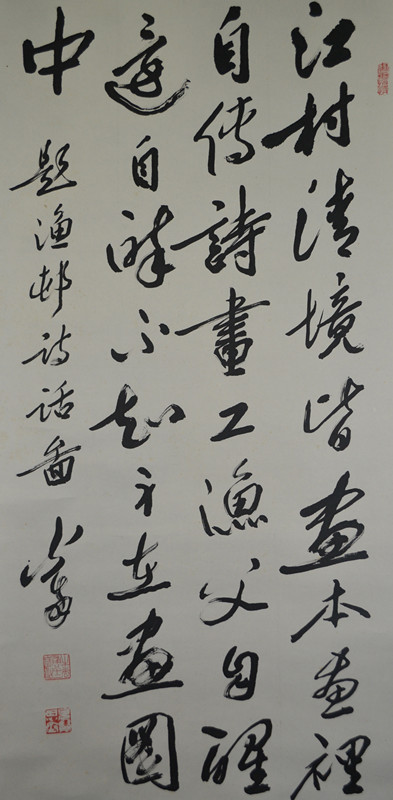 江村清境皆畫本畫裡
自傳詩畫工漁父自醒
還自醉不知身在畫圖
中 題漁邨詩話圖